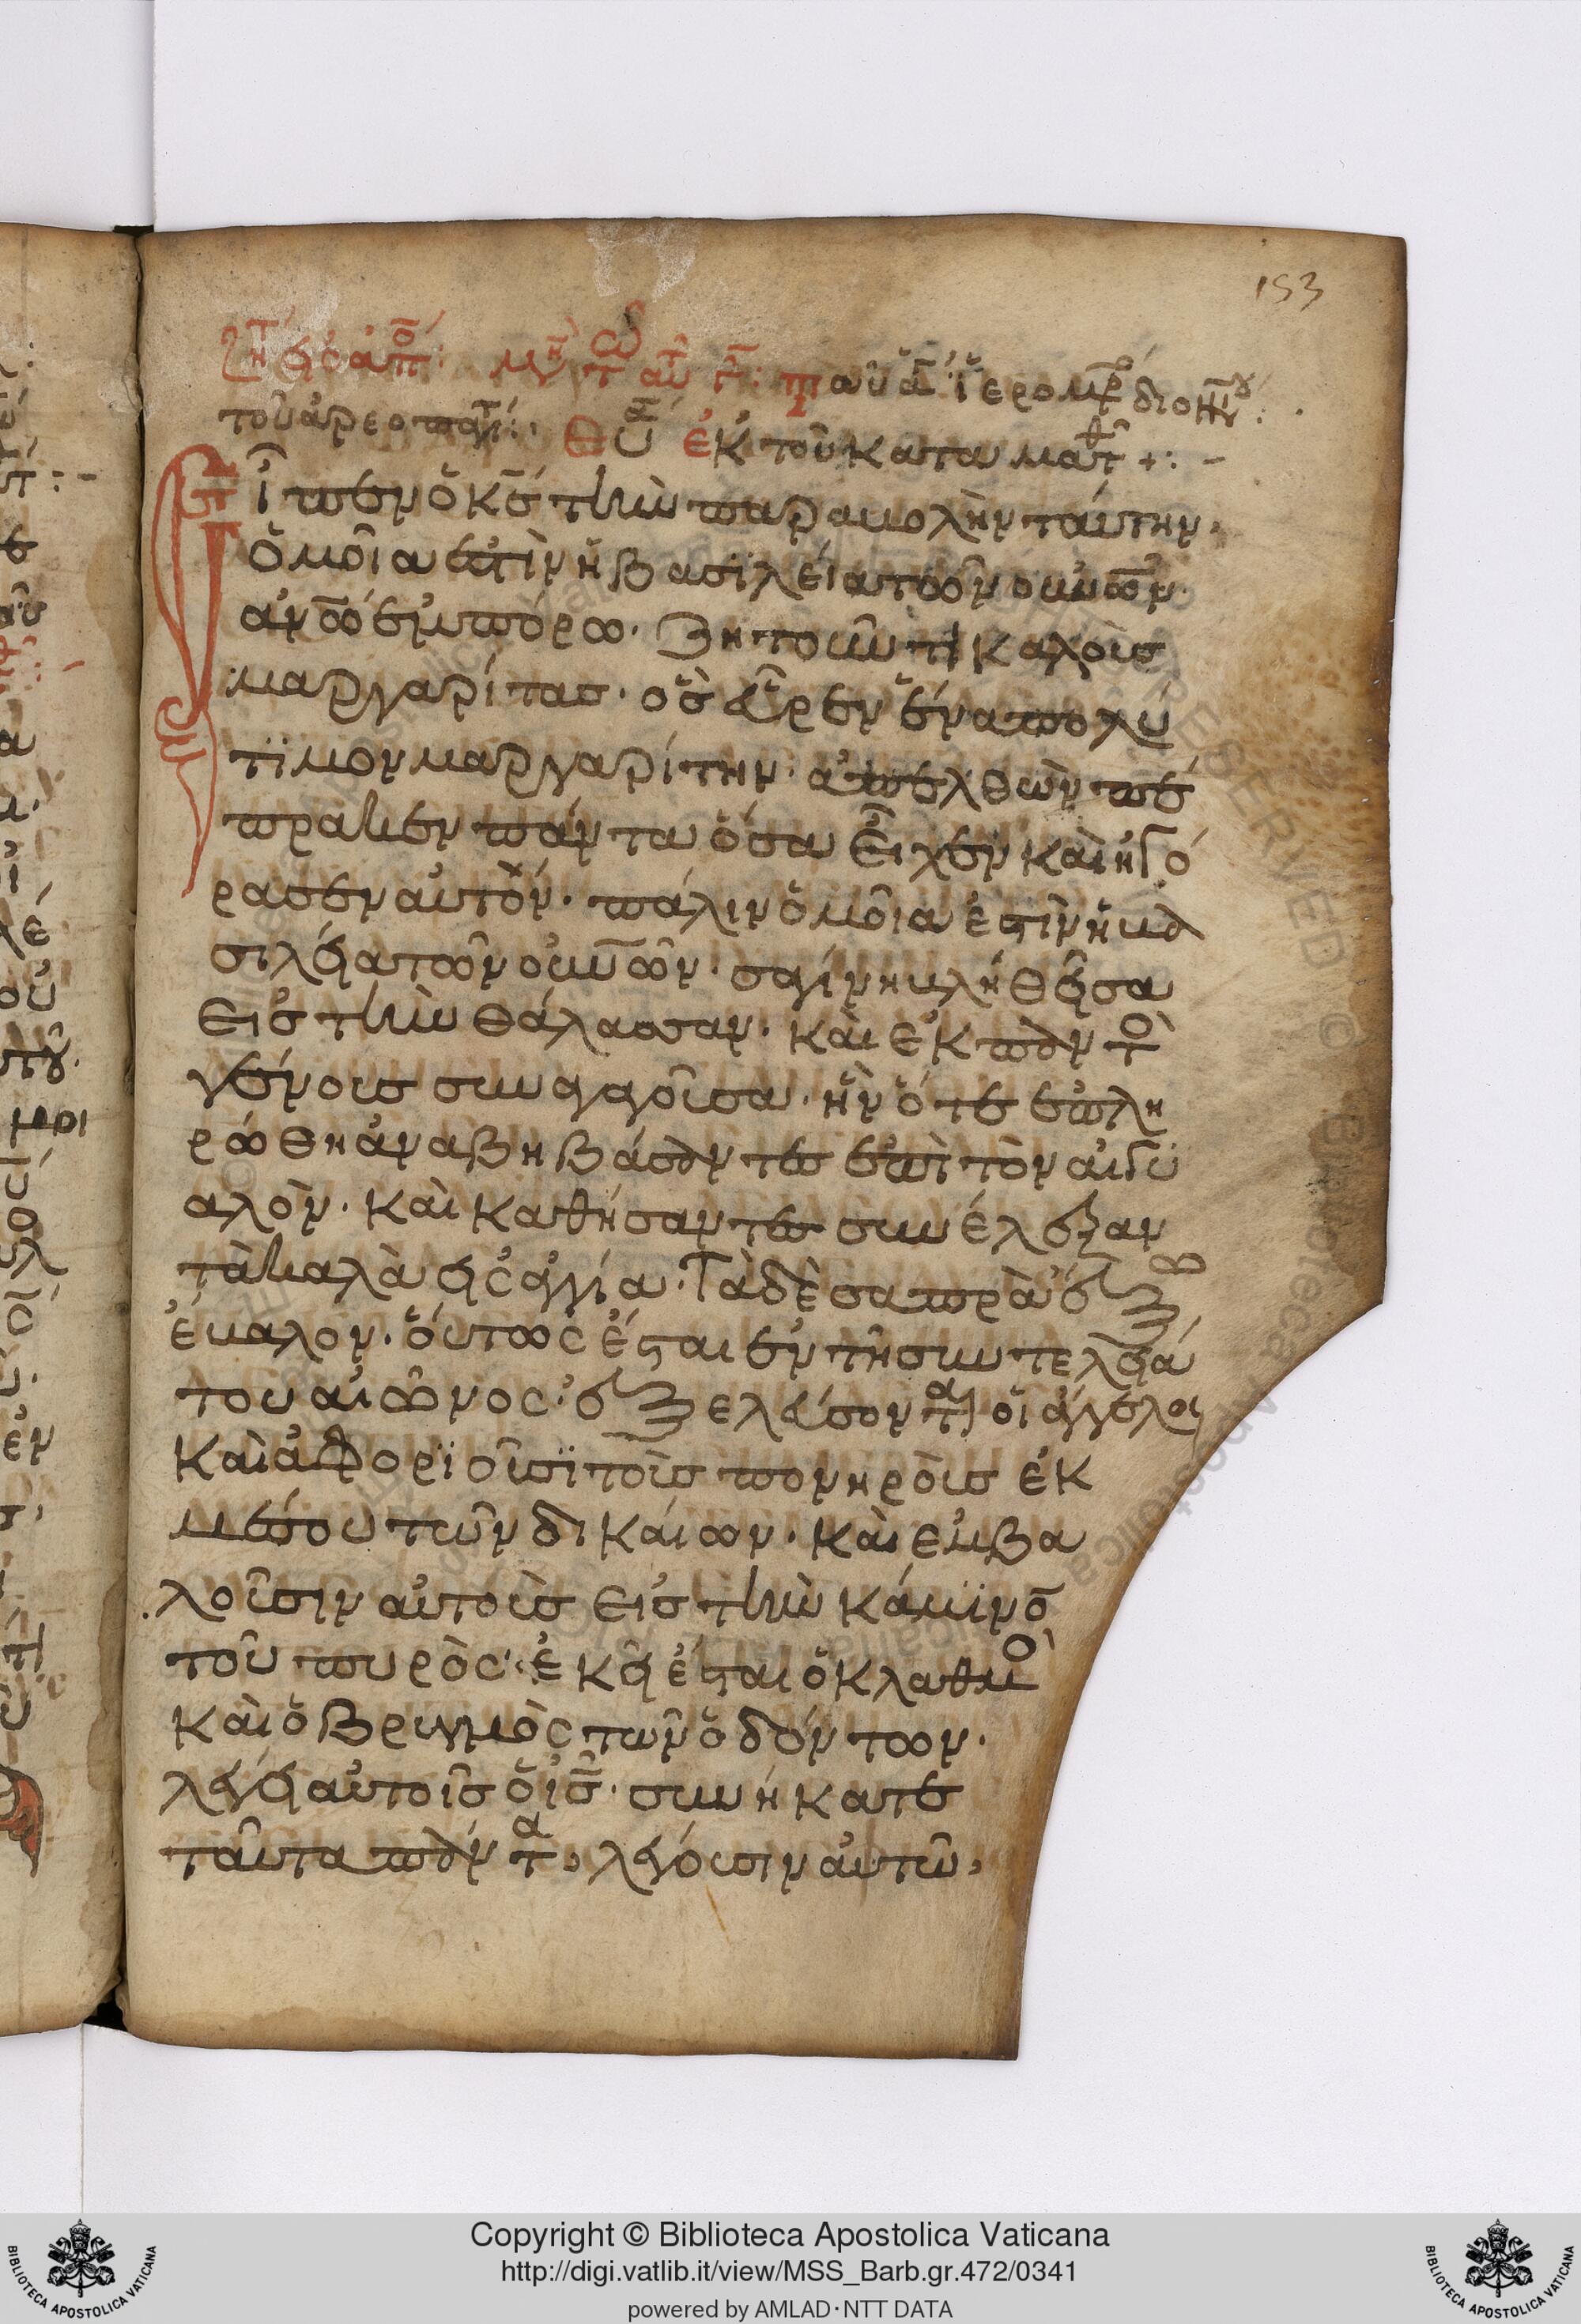 153
τοῦ ἀρεοπαγί: Εὐα ἐκ τοῦ κατα ματθ +: –
Εἶπεν ὁ κς τὴν παραβολὴν ταύτην.
ὁμοῖα ἐστὶν ἡ βασϊλεία τῶν οὐνῶν.
ανῶ ἐμπόρω. ζητοῦντι καλοὺς
μαργαρίτας. ὃς εὗρεν ἕνα πολύ
τϊμον μαργαρίτην. ἀπελθὼν πέ
πρακεν πάντα ὅσα εἶχεν καὶ ηγό
ρασεν αὐτόν. πάλιν ὁμοῖα ἐστὶν ἡ βα
σιλεία τῶν οὐνῶν. σαγίνη βληθεῖσα
εις τὴν θάλασσαν. καὶ ἐκ παν το
γένους συναγαγοῦσα. ἣν ὅτε ἐπλη
ρώθη ἀναβηβάσαντες ἐπὶ τὸν αἰγυ
αλὸν. καὶ καθήσαντες συνέλεξαν
τὰ καλὰ εἰς ἀγγία. Τὰ δὲ σαπρὰ ἔξω
ἔβαλον. οὕτως ἔσται ἐν τῆ συντελεία
του αἰῶνος. ἐξελεύσονται οἱ ἄγγελοι
καὶ ἀφορϊοῦσϊ τοὺς πονηροὺς ἐκ
μέσου τῶν δικαίων. καὶ ἐμβα
λοῦσιν αὐτοὺς εις τὴν κάμϊνο
τοῦ πυρὸς. ἐκεῖ ἔσται ὁ κλαθμο
καὶ ὁ βρυγμὸς τῶν ὀδόντων.
λέγει αὐτοῖς ὁ ις. συνήκατε
ταῦτα πάντα, λέγουσιν αὐτῶ,
Copyright © Biblioteca Apostolica Vaticana
http://digi.vatlib.it/view/MSS_Barb.gr.472/0341
powered by AMLAD·NTT DATA
BIBLIOTECA APOSTOLICA VATICANA
BIBLIOTECA APOSTOLICA VATICANA